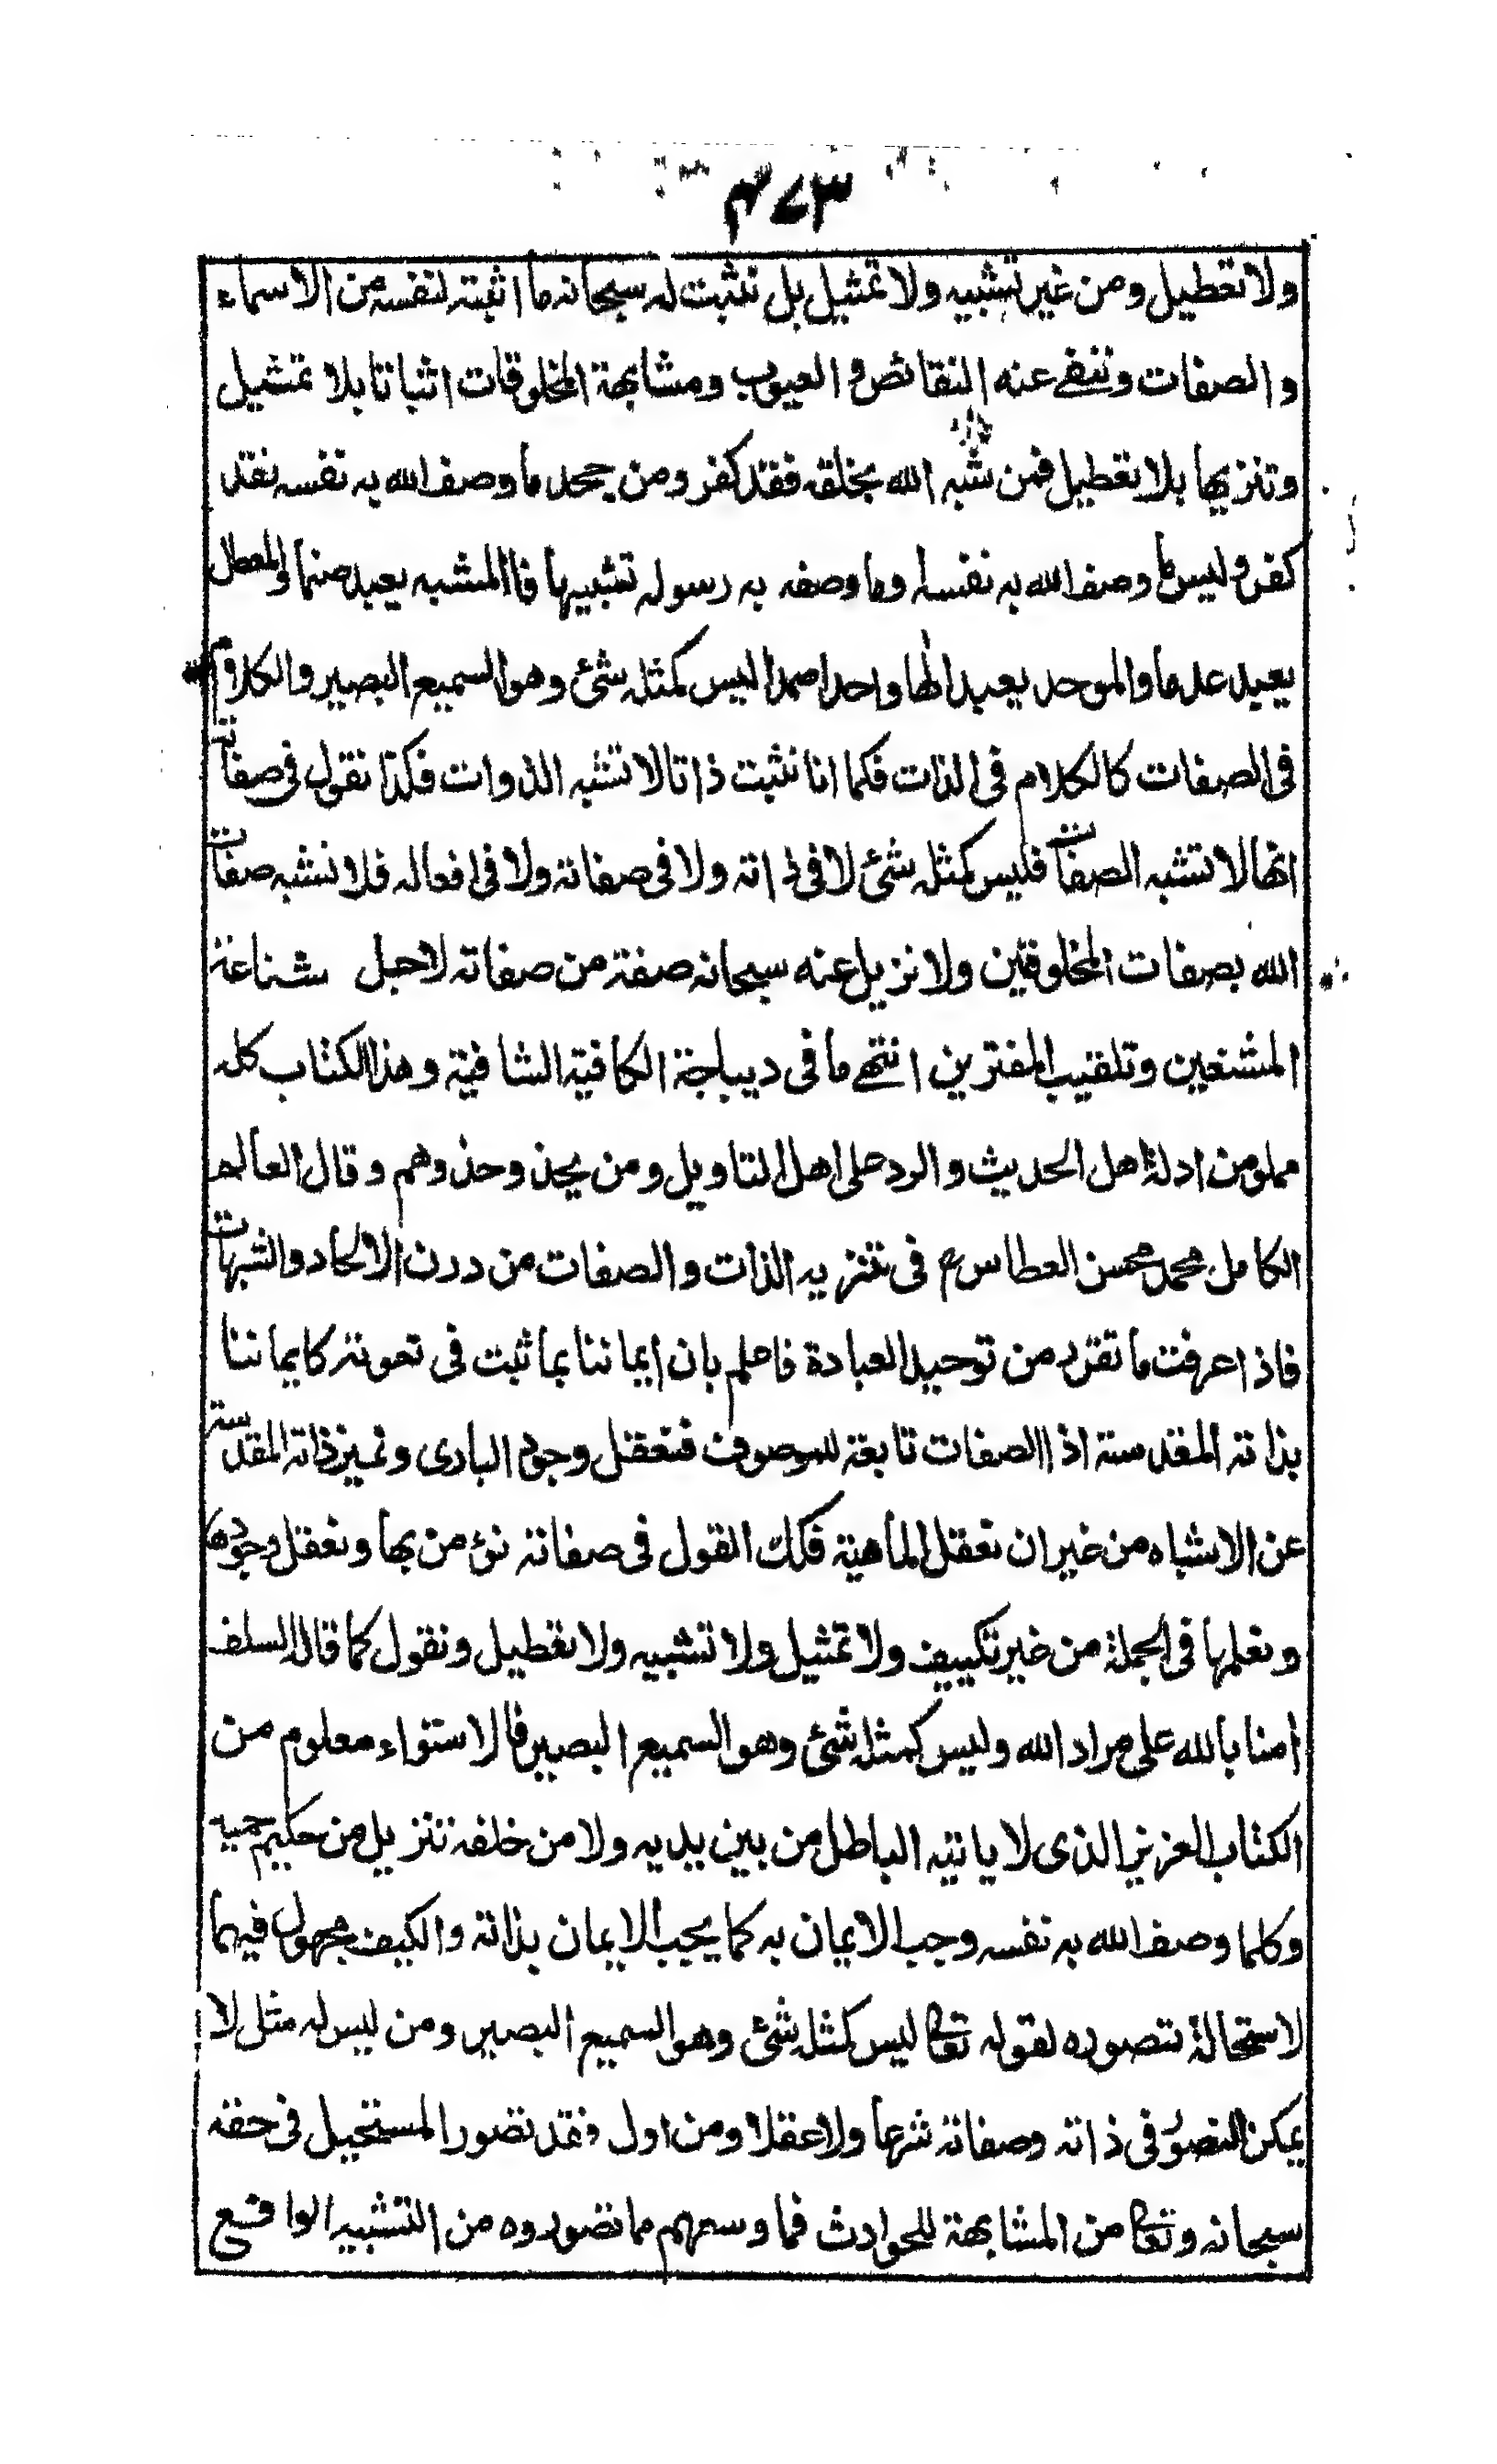 ٤٧٣
ولا تعطيل ومن غير تشبيه ولا تمثيل بل نثبت له سبحانه ما اثبته لنفسه من الاسماء
والصفات وننفى عنه النقائص والعيوب ومشابهة المخلوقات اثباتا بلا تمثيل
وتنزيها بلا تعطيل فمن شبه الله بخلقه فقد كفر ومن جحد ما وصف الله به نفسه فقد
كفر وليس ما وصف الله به نفسه او ما وصفه به رسوله تشبيها فالمشبه يعبد صنما والمعطل
يعبد عدما والموحد يعبد الها واحدا صمدا ليس كمثله شئ وهو السميع البصير والكلام
فى الصفات كالكلام فى الذات فكما انا نثبت ذاتا لا تشبه الذوات فكذا نقول فى صفاته
انها لا تشبه الصفات فليس كمثله شئ لا فى ذاته ولا فى صفاته ولا فى افعاله فلا نشبه صفات
الله بصفات المخلوقين ولا نزيل عنه سبحانه صفة من صفاته لاجل شناعة
المشنعين وتلقيب المفترين انتهى ما فى ديباجة الكافية الشافية وهذا الكتاب كله
مملو من ادلة اهل الحديث والرد على اهل التاويل ومن يحذو حذوهم وقال العالم
الكامل محمد محسن العطاس رح فى تنزيه الذات والصفات من درن الالحاد والشبهات
فاذا عرفت ما تقرر من توحيد العبادة فاعلم بان ايماننا بما ثبت فى نعوته كايماننا
بذاته المقدسة اذ الصفات تابعة للموصوف فنعقل وجود البارى ونميز ذاته المقدسة
عن الاشباه من غير ان نعقل الماهية فكك القول فى صفاته نؤمن بها ونعقل وجودها
ونعلمها فى الجملة من غير تكييف ولا تمثيل ولا تشبيه ولا تعطيل ونقول كما قال السلف
امنا بالله على مراد الله وليس كمثله شئ وهو السميع البصير فالاستواء معلوم من
الكتاب العزيز الذى لا ياتيه الباطل من بين يديه ولا من خلفه تنزيل من حكيم حميد
وكلما وصف الله به نفسه وجب الايمان به كما يجب الايمان بذاته والكيف مجهول فيهما
لاستحالة تصوره لقوله تعالى ليس كمثله شئ وهو السميع البصير ومن ليس له مثل لا
يمكن التصور فى ذاته وصفاته شرعا ولا عقلا ومن اول فقد تصور المستحيل فى حقه
سبحانه وتعالى من المشابهة للحوادث فما وسعهم مما تصوروه من التشبيه الواقع